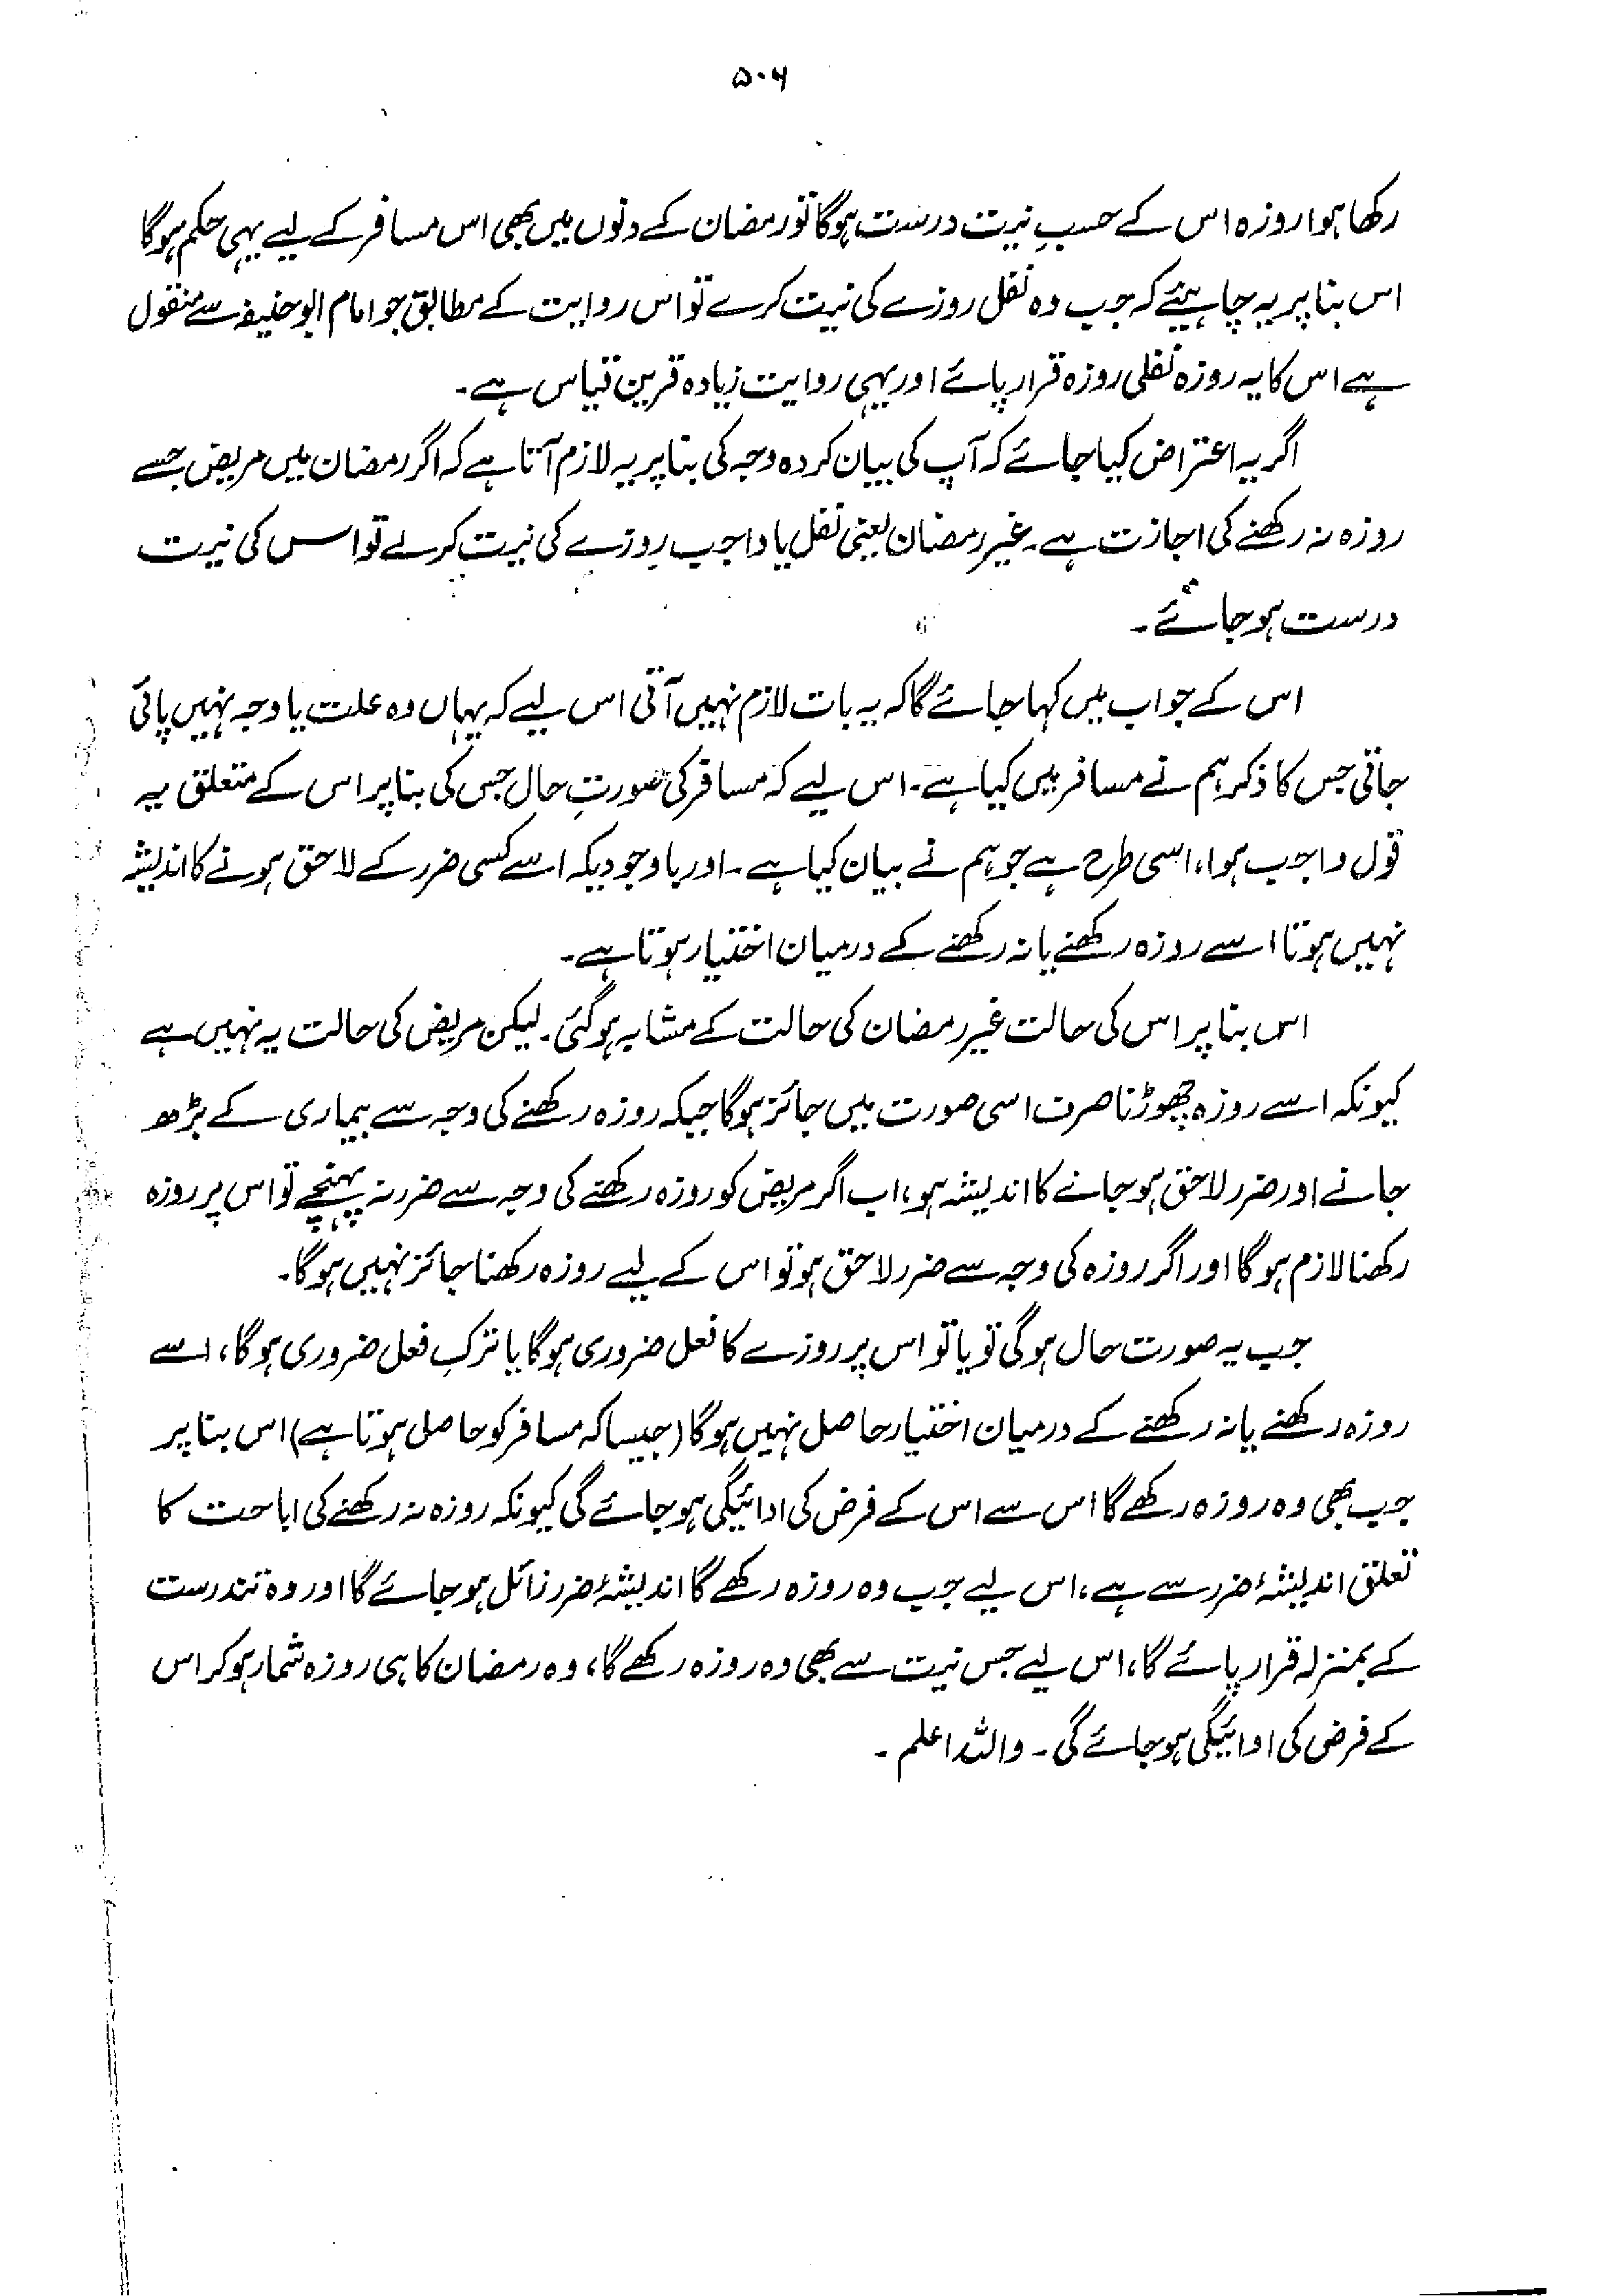 ۵۰۶
رکھا ہوا روزہ اس کے حسبِ نیت درست ہوگا تو رمضان کے دنوں میں بھی اس مسافر کے لیے یہی حکم ہوگا
اس بنا پر یہ چاہیئے کہ جب وہ نفل روزے کی نیت کرے تو اس روایت کے مطابق جو امام ابوحنیفہ سے منقول
ہے اس کا یہ روزہ نفلی روزہ قرار پائے اور یہی روایت زیادہ قرین قیاس ہے۔
اگر یہ اعتراض کیا جائے کہ آپ کی بیان کردہ وجہ کی بنا پر یہ لازم آتا ہے کہ اگر رمضان میں مریض جسے
روزہ نہ رکھنے کی اجازت ہے۔ غیر رمضان یعنی نفل یا واجب روزے کی نیت کرلے تو اس کی نیت
درست ہوجائے۔
اس کے جواب میں کہا جائے گا کہ یہ بات لازم نہیں آتی اس لیے کہ یہاں وہ علت یا وجہ نہیں پائی
جاتی جس کا ذکر ہم نے مسافر میں کیا ہے۔ اس لیے کہ مسافر کی صورتِ حال جس کی بنا پر اس کے متعلق یہ
قول واجب ہوا، اسی طرح ہے جو ہم نے بیان کیا ہے۔ اور باوجودیکہ اسے کسی ضرر کے لاحق ہونے کا اندیشہ
نہیں ہوتا اسے روزہ رکھنے یا نہ رکھنے کے درمیان اختیار ہوتا ہے۔
اس بنا پر اس کی حالت غیر رمضان کی حالت کے مشابہ ہوگئی۔ لیکن مریض کی حالت یہ نہیں ہے
کیونکہ اسے روزہ چھوڑنا صرف اسی صورت میں جائز ہوگا جبکہ روزہ رکھنے کی وجہ سے بیماری کے بڑھ
جانے اور ضرر لاحق ہوجانے کا اندیشہ ہو، اب اگر مریض کو روزہ رکھنے کی وجہ سے ضرر نہ پہنچے تو اس پر روزہ
رکھنا لازم ہوگا اور اگر روزہ کی وجہ سے ضرر لاحق ہو تو اس کے لیے روزہ رکھنا جائز نہیں ہوگا۔
جب یہ صورت حال ہوگی تو یا تو اس پر روزے کا فعل ضروری ہوگا یا ترکِ فعل ضروری ہوگا، اسے
روزہ رکھنے یا نہ رکھنے کے درمیان اختیار حاصل نہیں ہوگا (جیسا کہ مسافر کو حاصل ہوتا ہے) اس بنا پر
جب بھی وہ روزہ رکھے گا اس سے اس کے فرض کی ادائیگی ہوجائے گی کیونکہ روزہ نہ رکھنے کی اباحت کا
تعلق اندیشۂ ضرر سے ہے، اس لیے جب وہ روزہ رکھے گا اندیشۂ ضرر زائل ہوجائے گا اور وہ تندرست
کے بمنزلہ قرار پائے گا، اس لیے جس نیت سے بھی وہ روزہ رکھے گا، وہ رمضان کا ہی روزہ شمار ہوکر اس
کے فرض کی ادائیگی ہوجائے گی۔ واللہ اعلم۔